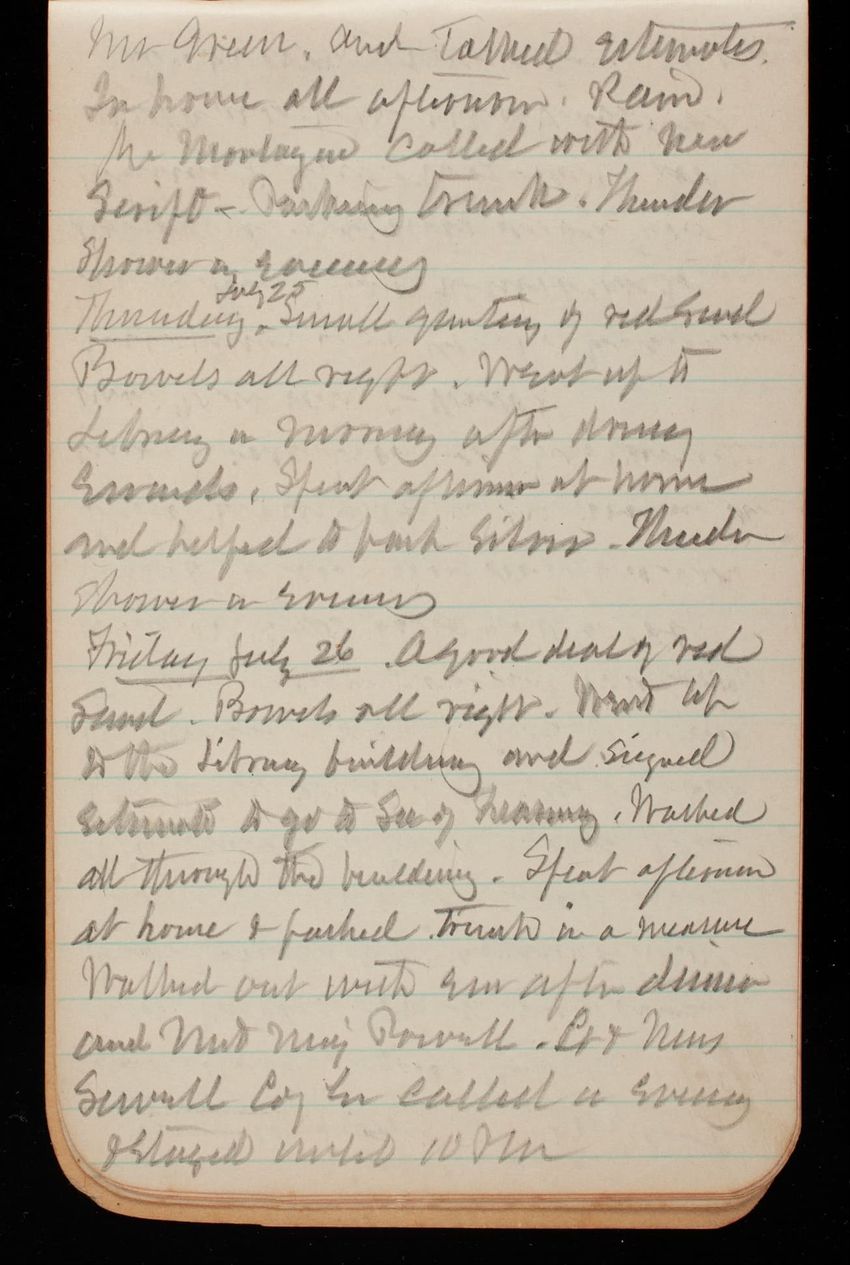 Mr Green, and Talked Estimates.
In house all afternoon. Rain.
Mr Montague called with new
Script - Packing trunk. Thunder
Shower in evening
Thursday July 25. Small quantity of red Sand
Bowels all right. Went up to
Library in morning after doing
Errands. Spent afternoon at home
and helped to pack Silver. Thunder
Shower in evening
Friday July 26. A good deal of red
Sand. Bowels all right. Went up
to the Library building and signed
Estimate to go to Sec of . Walked
all through the building. Spent afternoon
at home & packed trunk in a measure
Walked out with Em after dinner
and Met Maj Powell. Lt & Mrs
Sewell Called in Evening
& Stayed until 10 PM